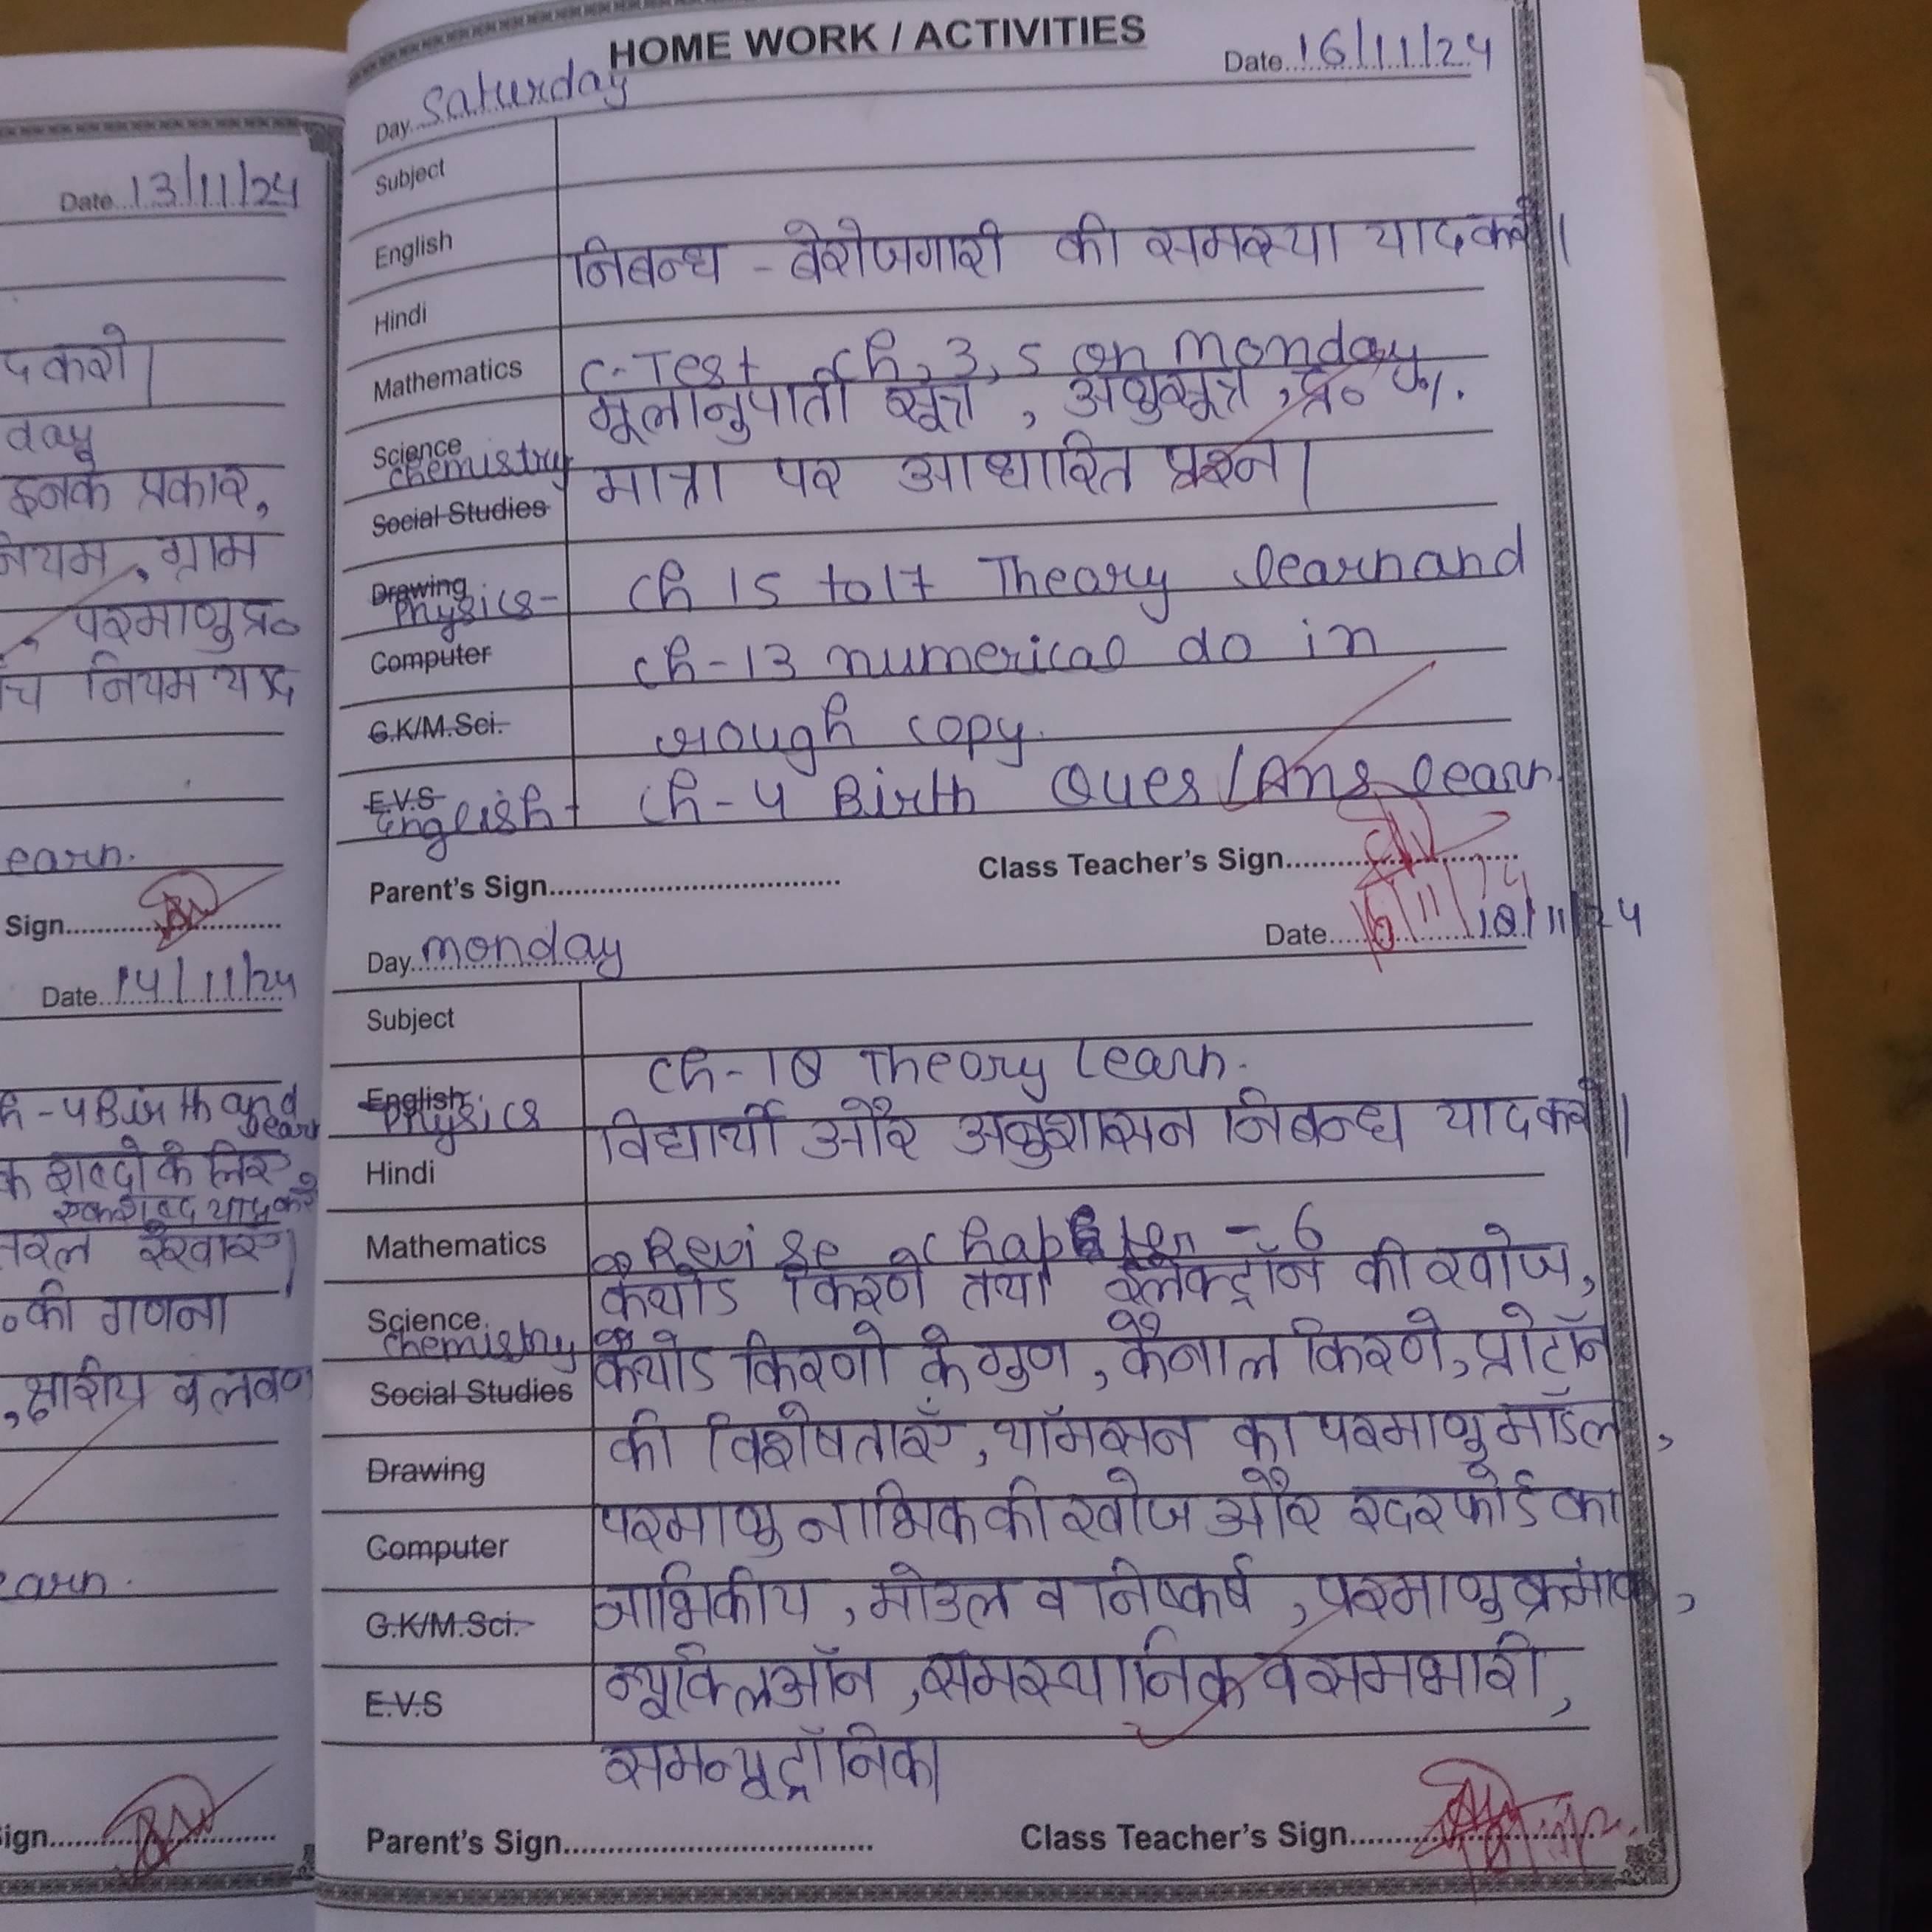 Date 13/11/24
द करो।
day
इनके प्रकार,
नियम, ग्राम
परमाणु द्र०
नियम याद
earn.
Sign
Date 14/11/24
h-4 Birth and
learn
क शब्दो के लिए
एक शब्द याद करो
तरल रेखाएँ।
०की गणना
,क्षारीय व लवण
earn.
ign
HOME WORK / ACTIVITIES
Day Saturday Date 16/11/24
Subject
English
निबन्ध - बेरोजगारी की समस्या याद करो।
Hindi
Mathematics C-Test Ch, 3, 5 on monday
मूलानुपाती सूत्र, अणुसूत्र, द्र० %.
Science
chemistry मात्रा पर आधारित प्रश्न।
Social Studies
Drawing
Physics- Ch 15 to 17 Theory learn and
Computer Ch-13 numerical do in
G.K/M.Sci. rough copy.
E.V.S
English - Ch-4 Birth Ques/Ans learn.
Parent's Sign Class Teacher's Sign
16/11/24
Day monday Date 18/11/24
Subject
Ch-18 Theory learn.
English
Physics
विद्यार्थी और अनुशासन निबन्ध याद करो।
Hindi
Mathematics Revise Chapter - 6
कैथोड किरणे तथा इलेक्ट्रॉन की खोज,
Science
chemistry
कैथोड किरणो के गुण, कैनाल किरणे, प्रोटॉन
Social Studies
की विशेषताएँ, थॉमसन का परमाणु मॉडल,
Drawing
परमाणु नाभिक की खोज और रदरफोर्ड का
Computer
नाभिकीय, मोडल व निष्कर्ष, परमाणु क्रमांक,
G.K/M.Sci.
न्यूक्लिऑन, समस्थानिक व समभारी,
E.V.S
समन्यूट्रॉनिक।
Parent's Sign Class Teacher's Sign